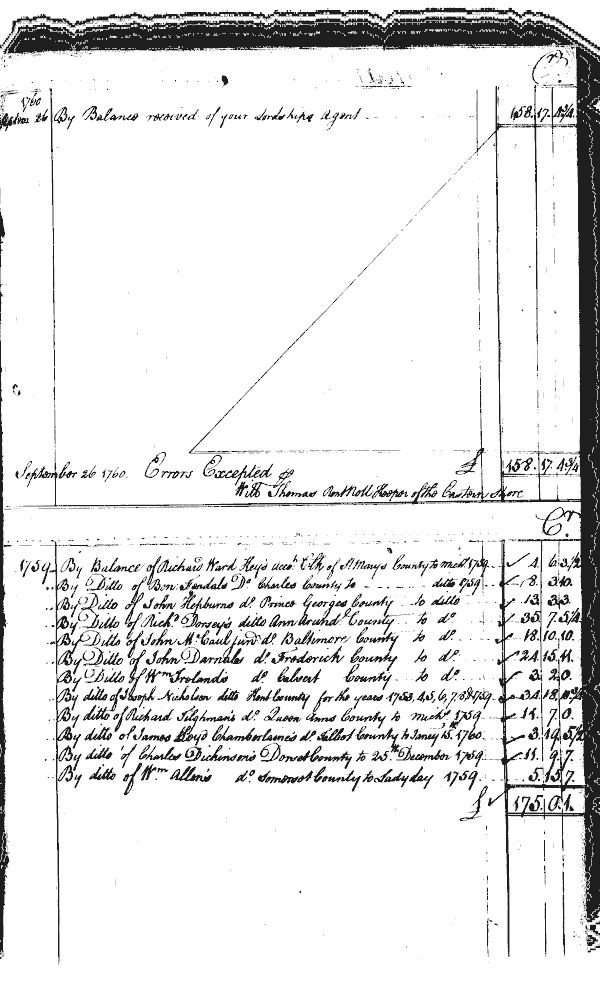 Cr.
1760
Septem 26 By Balance received of your Lordships Agent 158. 17. 4 3/4
September 26 1760. Errors Excepted £ 158. 17. 4 3/4
Will Thomas Rent Roll Keeper of the Eastern Shore
Cr.
1759 By Balance of Richard Ward Key's acco.t Clk of St Marys County to mich.s 1759
.. By Ditto of Ben: Fendals D.o Charles County to ditto 1759
.. By Ditto of John Hepburns d.o Prince Georges County to ditto 13. 3.3.
.. By Ditto of Rich.d Dorseys ditto Ann Arund.l County to d.o
.. By Ditto of John McCaul jun.r d.o Baltimore County to d.o 18. 10. 10.
.. By Ditto of John Darnales d.o Frederick County to d.o 24. 15. 11.
.. By Ditto of W.m Irelands d.o Calvert County to d.o 3. 2. 0.
.. By ditto of Joseph Nicholson ditto Kent County for the years 1753, 4, 5, 6, 7, 8 & 1759
.. By ditto of Richard Tilghman's d.o Queen Anns County to mich.s 1759 11. 7. 0.
.. By ditto of James Lloyd Chamberlaine's d.o Talbot County to 15. 1760
.. By ditto of Charles Dickinson's Dorset County to 25.th December 1759 11. 9. 7.
.. By ditto of W.m Allen's d.o Somerset County to Lady day 1759. 5. 15 7.
£ 175. 0. 1.